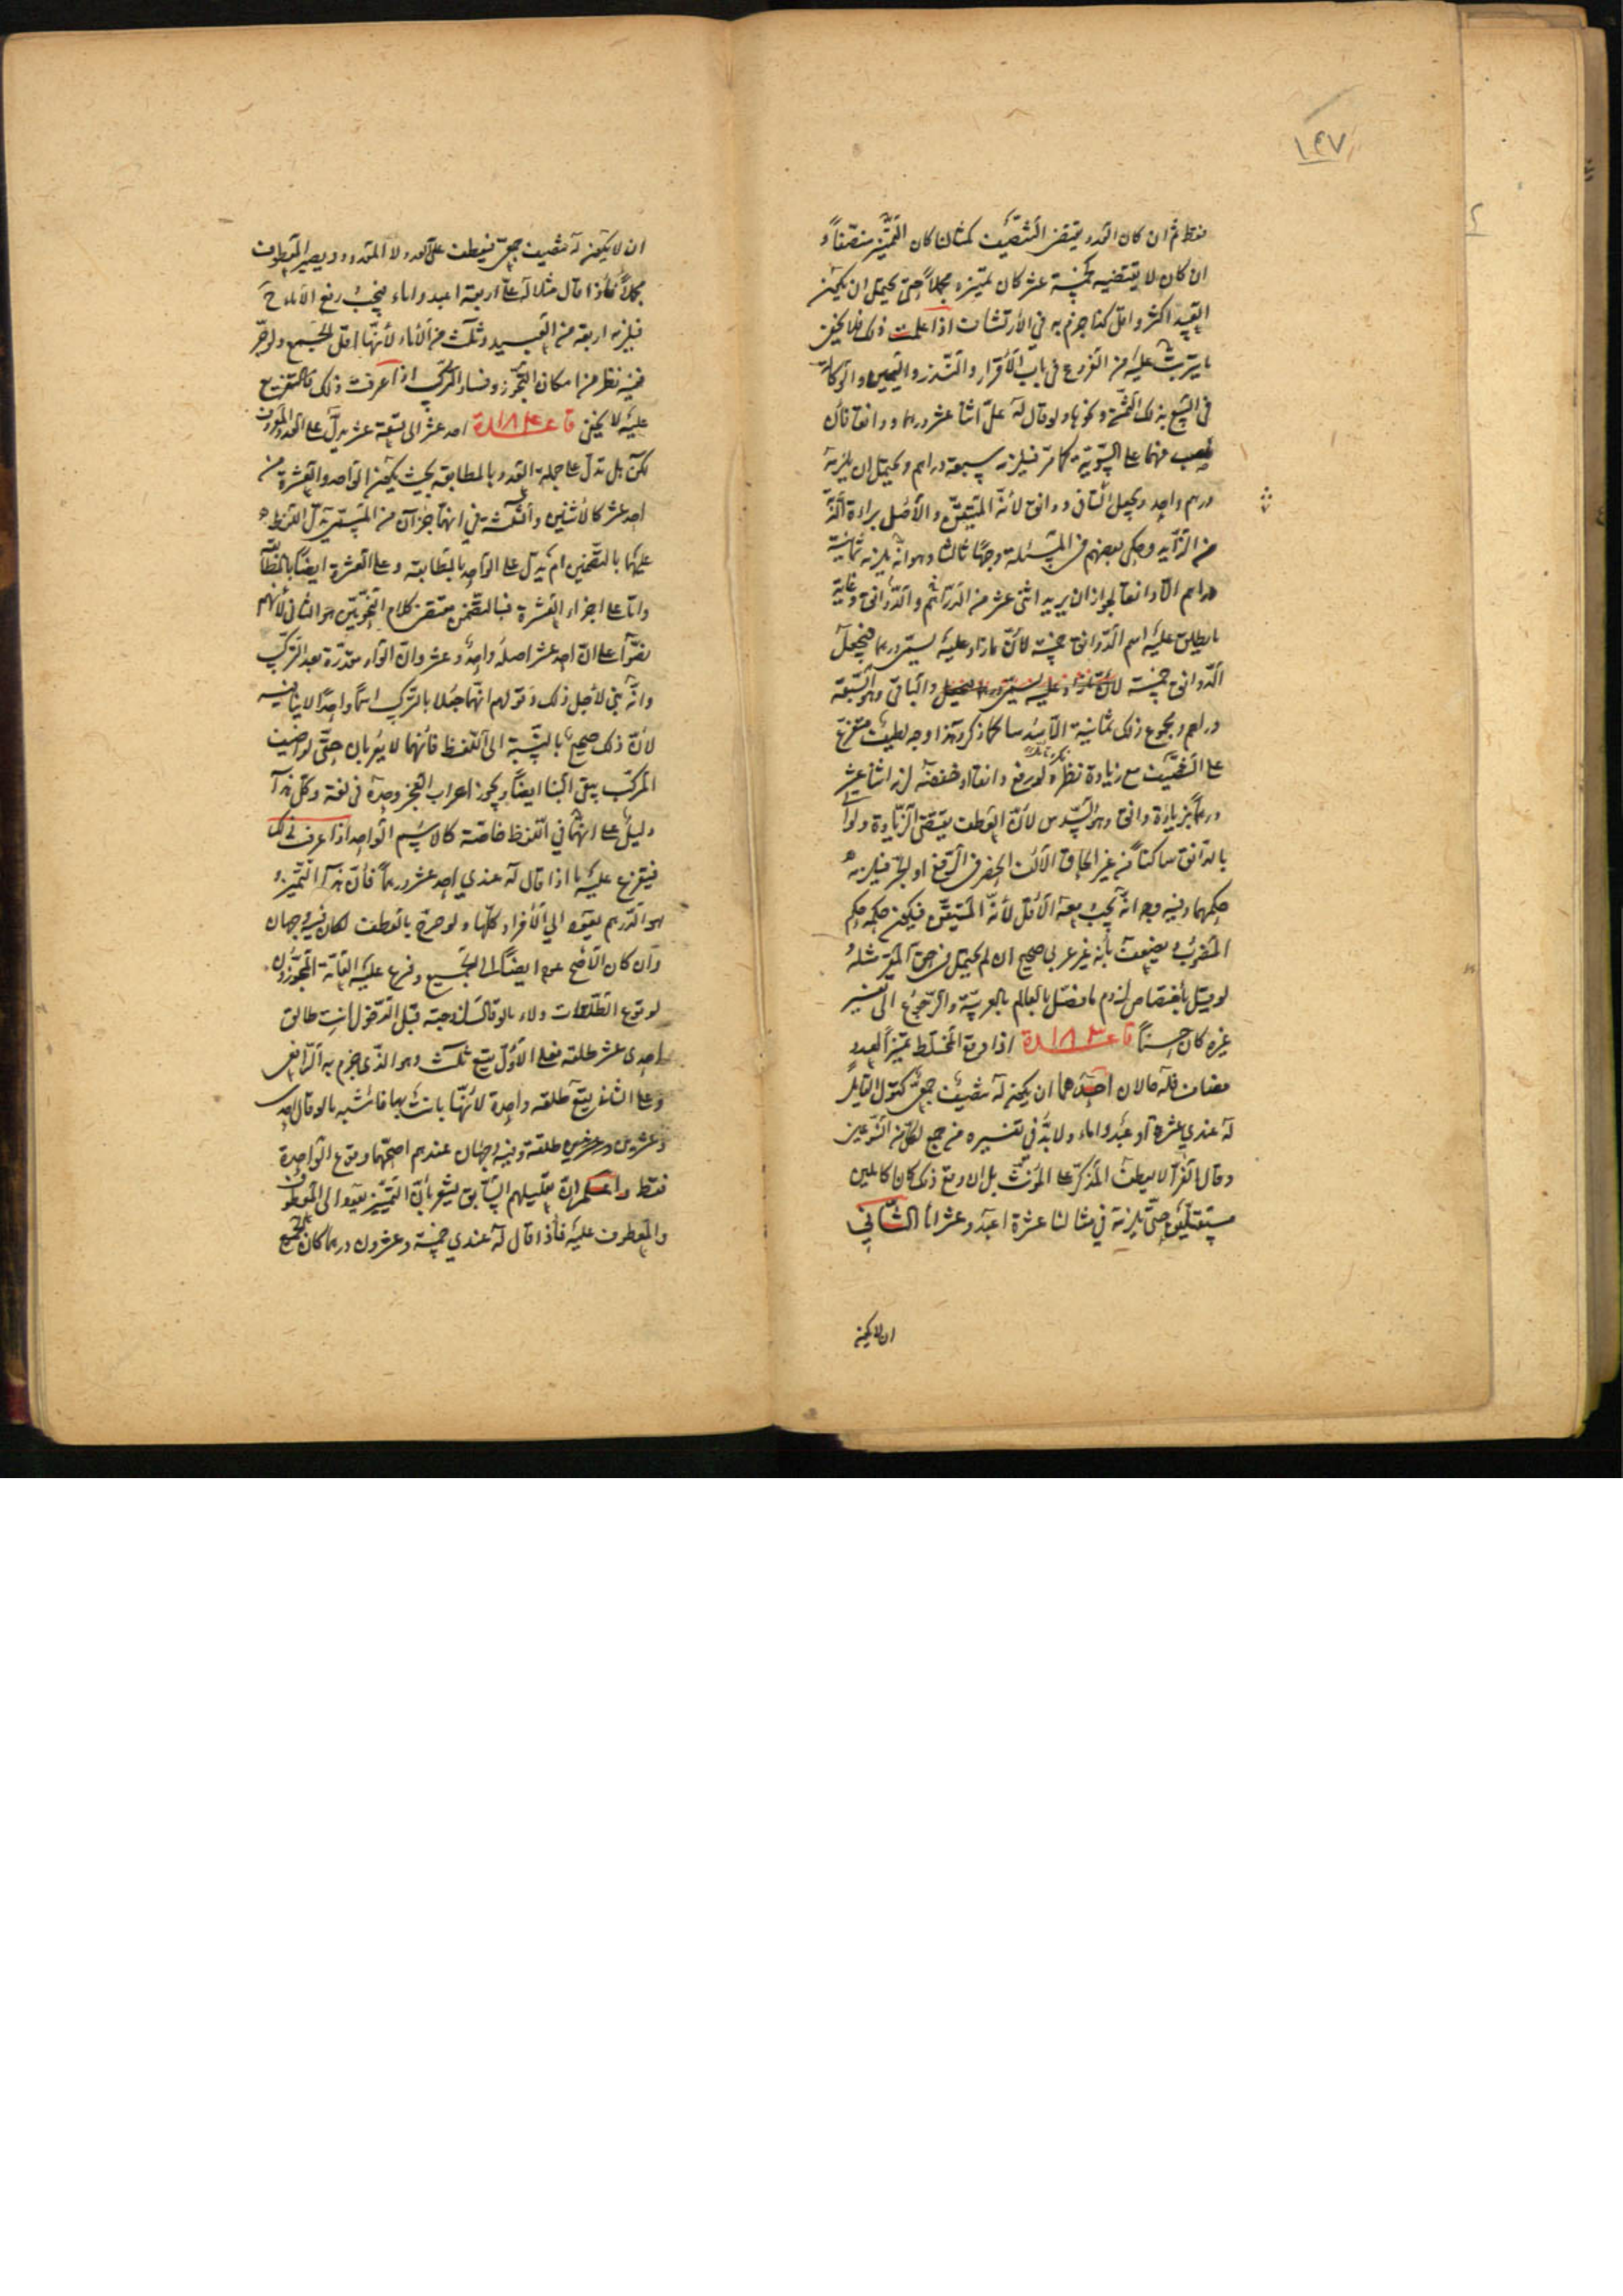 ١٤٧
فقط ثم ان كان العدد يقتضى التنصيف كمثالنا كان التميّز منصّفاً و
ان كان لا يقتضيه كخمسة عشر كان تميّزه مجملاً حتى يحتمل ان يكون
العبيد اكثر واقل كذا جزم به فى الارتشاف اذا علمت ذلك فلا يخفى
ما يترتب عليه من الفروع فى باب الاقرار والنذر واليمين والوكالة
فى البيع بذلك الثمن ونحوها ولو قال له علىّ اثنا عشر درهما ودانقا فان
نصب فهما على التسوية كما مرّ فيلزمه سبعة دراهم ويحتمل ان يلزمه
درهم واحد ويجعل الباقى دوانق لانه المتيقن والاصل براءة الذمّة
من الزايد وحكى بعضهم فى المسئلة وجهًا ثالثا وهو انه يلزمه ثمانية
دراهم الا دانقا لجواز ان يريد اثنى عشر من الدراهم والدوانق وغاية
ما يطلق عليه اسم الدوانق خمسة لانّ ما زاد عليه يسمّى درهما فيجعل
الدوانق خمسة والباقى وهو السبعة
دراهم ومجموع ذلك ثمانية الا سدسا كما ذكر وهذا وجه لطيف متفرع
على التنصيف مع زيادة نظر ولو رفع دانقا او خفضه لزمه اثنا عشر
درهماً بزيادة دانق وهو السدس لانّ العطف يقتضى الزيادة ولو اتى
بالدانق ساكناً من غير الحاق الالف الحق فى الرفع او الجر فيلزمه
حكمهما وفيه وجه انّه يجب معه الاقل لانّه المتيقن فيكون حكمه حكم
المنصوب ويضعف بأنه غير عربى صحيح ان لم يحتمل فى حق المقر مثله و
لو قيل باختصاص لزوم ما فصّل بالعالم بالعربيّة والرجوع الى تفسير
غيره كان حسناً قاعدة ١٨٣ اذا وقع المختلط تميز العدد
مضاف فله حالان احدهما ان يكون له تنصيف جمعىّ كقول القايل
له عندى عشرة اعبد واماء ولا بدّ فى تفسيره من جمع لكل من النوعين
وقال الفرّا لا يعطف المذكّر على المؤنث بل ان وقع ذلك كان كلامين
مستقلّين حتى يلزمه فى مثالنا عشرة اعبد وعشر اما الثانى
ان لا يكون
ان لا يكون له تنصيف جمعى فيعطف على العدد لا المعدود ويصير المعطوف
مجملاً فاذا قال مثلا له علىّ اربعة اعبد واماء فيجب رفع الاماء ح
فيلزمه اربعة من العبيد وثلث من الاماء لأنّها اقلّ الجمع ولو جرّ
ففيه نظر من امكان التجوّز وفساد التركيب اذا عرفت ذلك فالتفريع
عليه لا يخفى قاعدة ١٨٤ احد عشر الى تسعة عشر يدلّ على
لكن هل تدلّ على جملة العدد بالمطابقة بحيث يكون الواحد والعشرة من
احد عشر كالاثنين والثلثة فى انهما جزآن من المسمّى يدلّ اللفظ
عليهما بالتضمن ام يدلّ على الواحد بالمطابقة وعلى العشرة ايضًا بالمطابقة
واما على اجزاء العشرة فبالتضمن مقتضى كلام النحويّين هو الثانى لانهم
نصّوا على انّ احد عشر اصله واحد وعشر وانّ الواو مقدّرة بعد التركيب
وانّه بنى لاجل ذلك وقولهم انّهما جعلا بالتركيب اسمًا واحدًا لا ينافيه
لانّ ذلك صحيح بالنسبة الى اللفظ فانّهما لا يعربان حتّى لو اضيف
المركّب بقى البنا ايضاً ويجوز اعراب العجز وحده فى لغة وكلّ هذا
دليل على انهما فى اللفظ خاصّة كالاسم الواحد اذا عرفت ذلك
فيتفرع عليه ما اذا قال له عندى احد عشر درهماً فانّ هذا التميّز و
هو الدرهم يعود الى الافراد كلّها ولو صرّح بالعطف لكان فيه وجهان
وان كان الاصح عوده ايضاً الى الجميع وفرع عليه العامّة المجوّزون
لوقوع الطلقات ولاء ما لو قال لزوجته قبل الدخول انت طالق
احدى عشر طلقة فعلى الاوّل يقع ثلث وهو الذى جزم به الرافعى
وعلى الثانى يقع طلقة واحدة لانّها بانت بها فاشبه ما لو قال احدى
وعشرين طلقة وفيه وجهان عندهم اصحّهما وقوع الواحدة
فقط واعلم انّ تعليلهم السابق يشعر بانّ التميّز يعود الى المعطوف
والمعطوف عليه فاذا قال له عندى خمسة وعشرون درهما كان الجميع